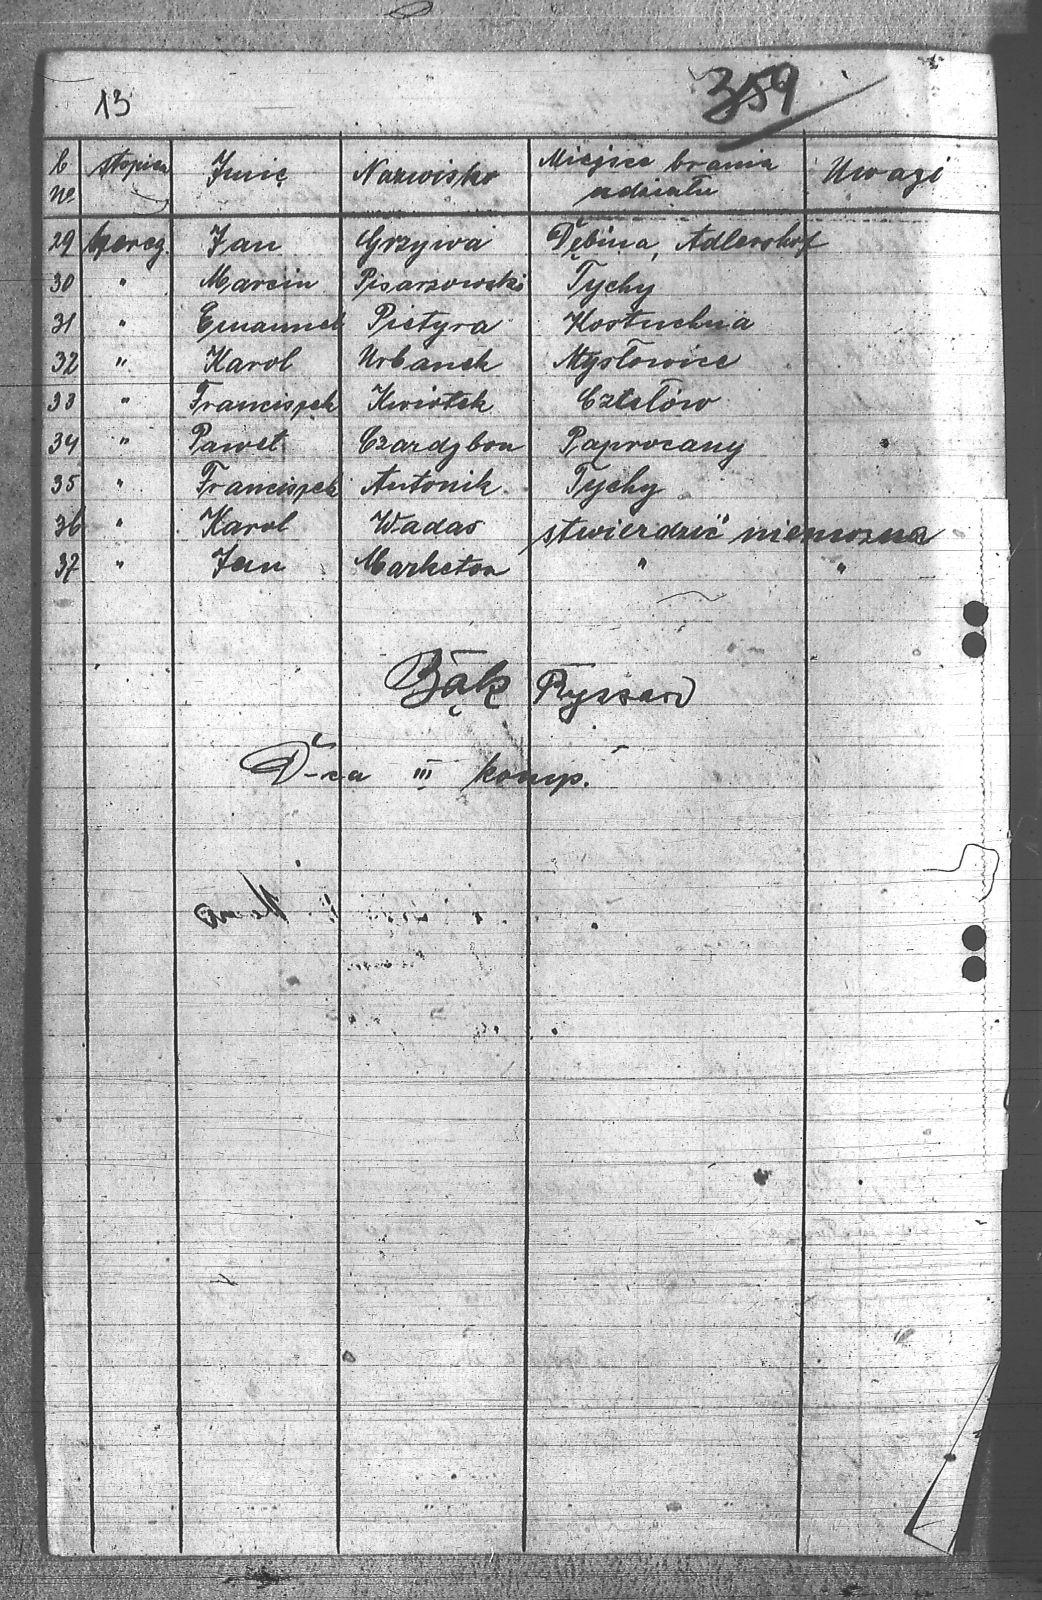 13
359
L
№ stopień Imię Nazwisko Miejsce brania udziału Uwagi
29 szereg. Jan Grzywa Dębina, Adlershof
30 " Marcin Pisarzowski Tychy
31 " Emanuel Pietyra Kostuchna
32 " Karol Urbanek Mysłowice
33 " Franciszek Kwiotek Czułów
34 " Paweł Czardybon Paprocany
35 " Franciszek Antonik Tychy
36 " Karol Wadas stwierdzić niemożna
37 " Jan Marketon " "
Bąk Ryszard
D-ca III komp.